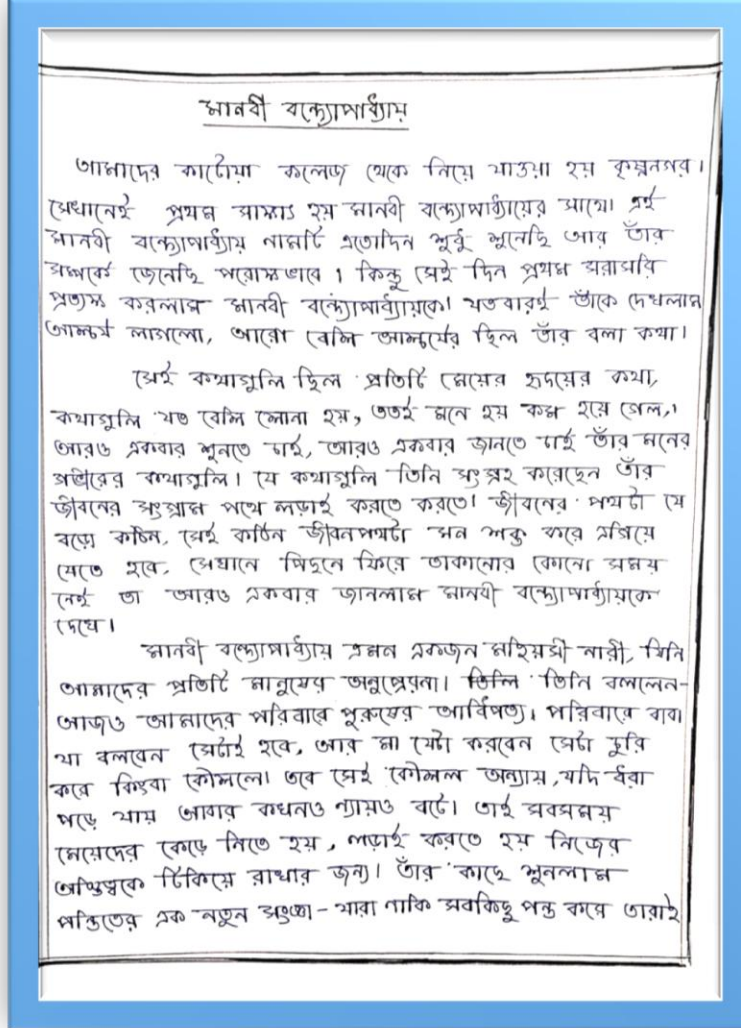 মানবী বন্দ্যোপাধ্যায়
আমাদের কাটোয়া কলেজ থেকে নিয়ে যাওয়া হয় কৃষ্ণনগর।
সেখানেই প্রথম সাক্ষাৎ হয় মানবী বন্দ্যোপাধ্যায়ের সাথে। এই
মানবী বন্দ্যোপাধ্যায় নামটি এতোদিন শুধু শুনেছি আর তাঁর
সম্পর্কে জেনেছি পরোক্ষভাবে। কিন্তু সেই দিন প্রথম সরাসরি
প্রত্যক্ষ করলাম মানবী বন্দ্যোপাধ্যায়কে। যতবারই তাঁকে দেখলাম
আশ্চর্য লাগলো, আরো বেশি আশ্চর্যের ছিল তাঁর বলা কথা।
সেই কথাগুলি ছিল প্রতিটি মেয়ের হৃদয়ের কথা,
কথাগুলি যত বেশি শোনা হয়, ততই মনে হয় কম হয়ে গেল,।
আরও একবার শুনতে চাই, আরও একবার জানতে চাই তাঁর মনের
গভীরের কথাগুলি। যে কথাগুলি তিনি সংগ্রহ করেছেন তাঁর
জীবনের সংগ্রাম পথে লড়াই করতে করতে। জীবনের পথটা যে
বড়ো কঠিন, সেই কঠিন জীবনপথটা মন শক্ত করে এগিয়ে
যেতে হবে, সেখানে পিছনে ফিরে তাকানোর কোনো সময়
নেই তা আরও একবার জানলাম মানবী বন্দ্যোপাধ্যায়কে
দেখে।
মানবী বন্দ্যোপাধ্যায় এমন একজন মহিয়সী নারী, যিনি
আমাদের প্রতিটি মানুষের অনুপ্রেরনা। তিনি বললেন-
আজও আমাদের পরিবারে পুরুষের আধিপত্য। পরিবারে বাবা
যা বলবেন সেটাই হবে, আর মা যেটা করবেন সেটা চুরি
করে কিংবা কৌশলে। তবে সেই কৌশল অন্যায়, যদি ধরা
পড়ে যায় আবার কখনও ন্যায়ও বটে। তাই সবসময়
মেয়েদের কেড়ে নিতে হয়, লড়াই করতে হয় নিজের
অস্তিত্বকে টিকিয়ে রাখার জন্য। তাঁর কাছে শুনলাম
পন্ডিতের এক নতুন সংজ্ঞা - যারা নাকি সবকিছু পন্ড করে তারাই